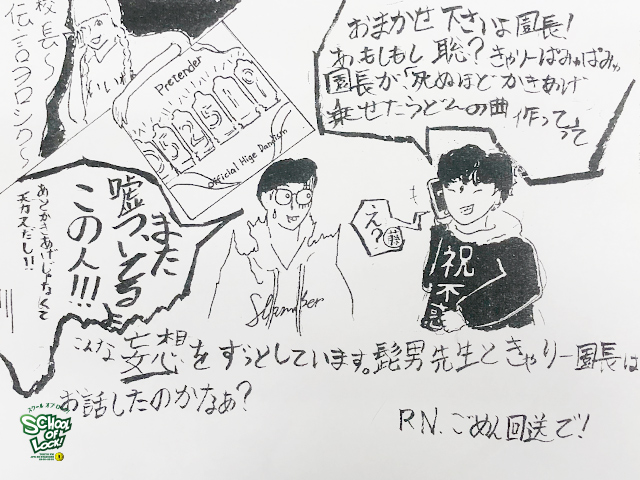 校長〜
伝言ヨロシク〜
Pretender
Official Hige Dandism
おまかせ下さいよ園長!
あもしもし聡?きゃりーぱみゅぱみゅ
園長が「死ぬほどかきあげ
乗せたうどんの曲作ってって
え?
祝不惑
また
嘘ついとるよ
この人!!!
あとかきあげじゃなくて
天カスだし!!
こんな妄想をずっとしています。髭男先生ときゃりー園長は
お話したのかなぁ?
スクール オブ
SCHOOL
OF
LOCK!
R.N.ごめん回送で!